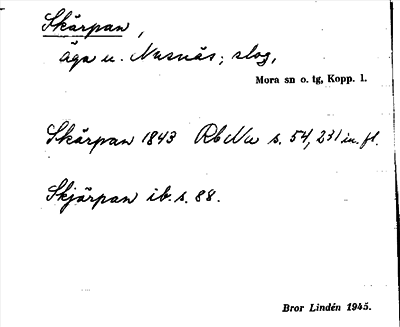 Skärpan,
äga u. Nusnäs; slog,
Mora sn o. tg, Kopp. l.
Skärpan 1843 RbNu s. 54, 231 m. fl.
Skjärpan ib. s. 88.
Bror Lindén 1945.